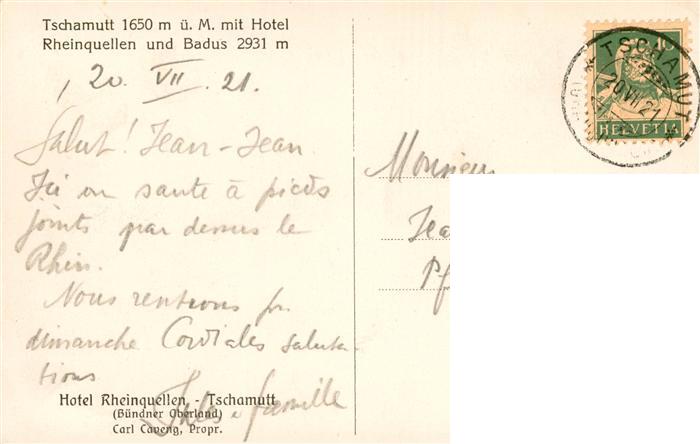 Tschamutt 1650 m ü. M. mit Hotel
Rheinquellen und Badus 2931 m
20 VII. 21.
Salut! Jean-Jean
Ici on saute à pieds
joints par dessus le
Rhin.
Nous rentrons
dimanche Cordiales saluta-
tions
Jules & famille
Hotel Rheinquellen, - Tschamutt
(Bündner Oberland)
Carl Caveng, Propr.
10
HELVETIA
TSCHAMUTT
20 VII 21
Monsieur
Jea
Pf